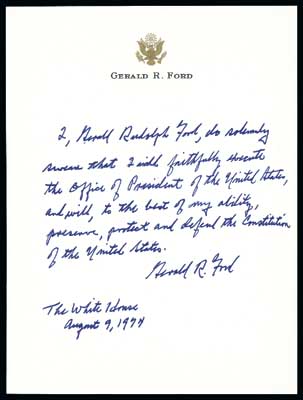 GERALD R. FORD
I, Gerald Rudolph Ford, do solemnly
swear that I will faithfully execute
the Office of President of the United States,
and will, to the best of my ability,
preserve, protect and defend the Constitution
of the United States.
Gerald R. Ford
The White House
August 9, 1974